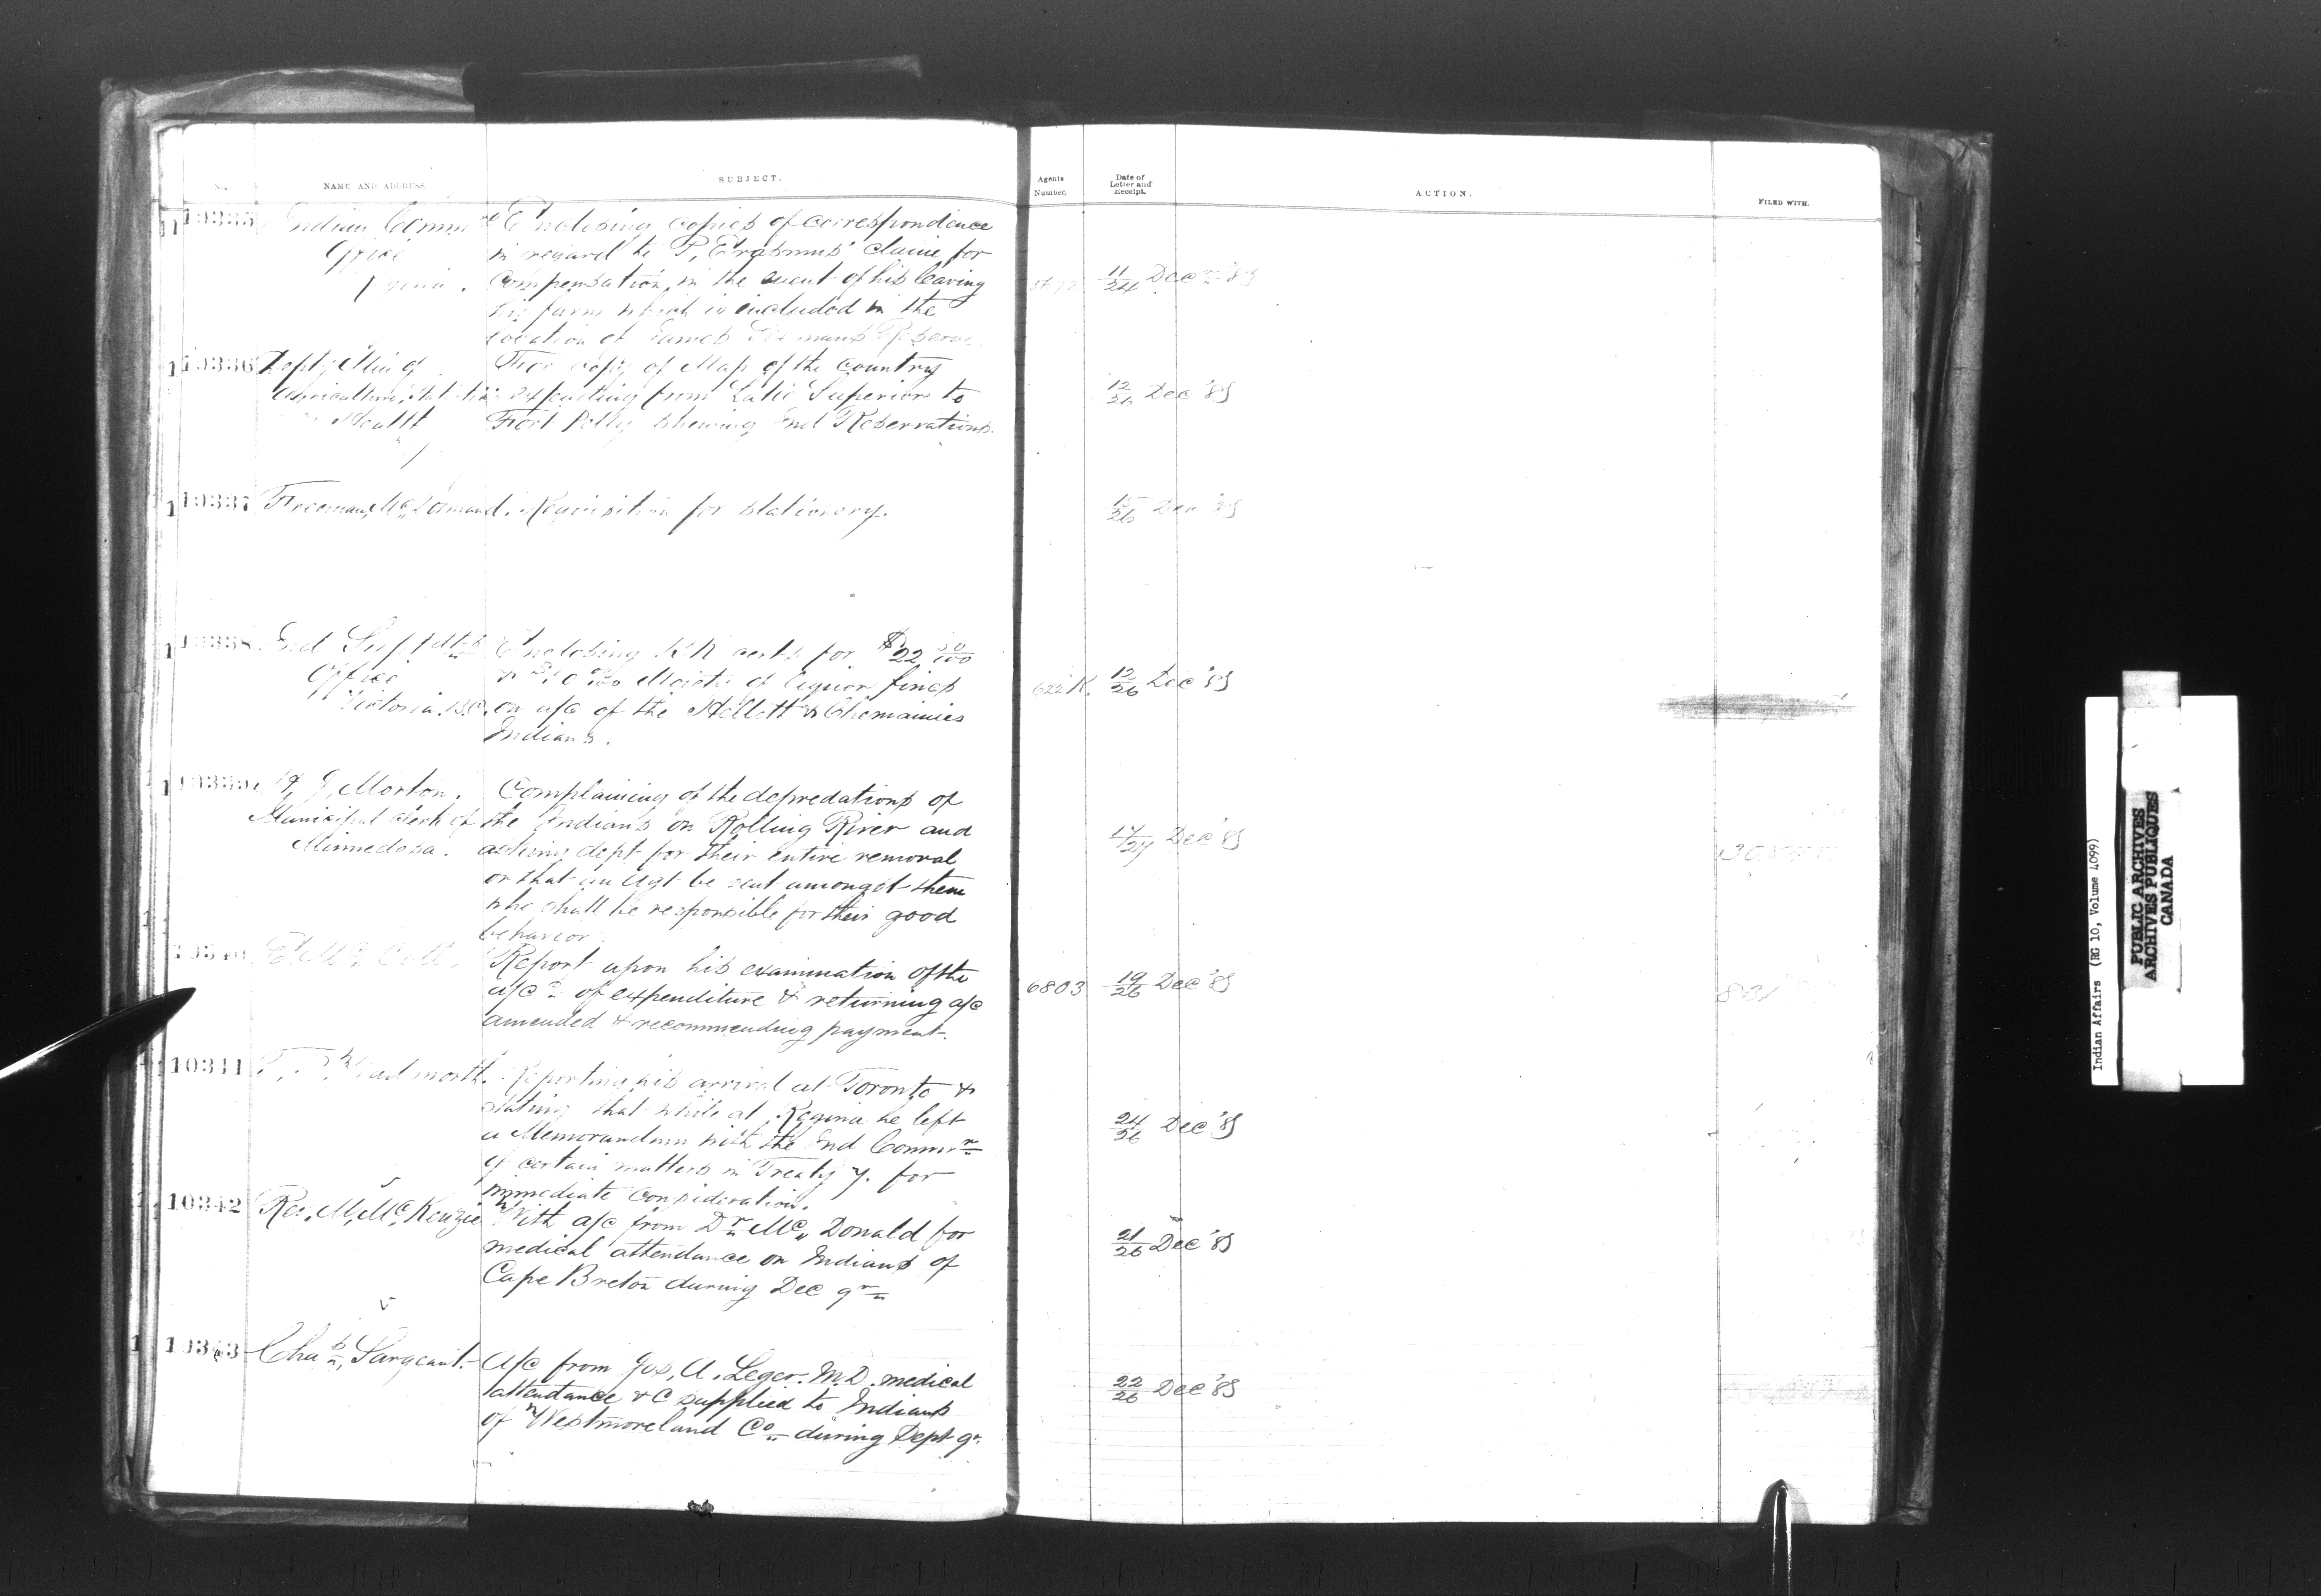 No.
NAME AND ADDRESS.
SUBJECT.
Agents
Number.
Date of
Letter and
Receipt.
ACTION.
FILED WITH.
10335
Indian Commrs
Office
Regina.
Enclosing copies of correspondence
in regard to P, Erasmus' claim for
compensation, in the event of his leaving
his farm which is included in the
location of James Reserve.
11/24 Decr '85
10336
Dept, Min of
Agriculture, Statistics
Health
For copy of Map of the country
extending from Lake Superior to
Fort Pelly shewing Ind Reservations.
12/26 Dec '85
10337
Freeman, McDormand.
Requisition for stationery.
15/26 Dec '85
10338
Ind Suptdts
Office
Victoria. B.C.
Enclosing certs for $22 50/100
Moiety of liquor fines
on a/c of the & Chemainies
Indians.
622 K.
12/26 Dec '85
10339
J, Morton.
Municipal Clerk of
Minnedosa.
Complaining of the depredations of
the Indians on Rolling River and
asking dept for their entire removal
or that an Agt be sent amongst them
who shall be responsible for their good
behavior.
17/27 Dec '85
10340
E, McColl.
Report upon his examination of the
a/cs of expenditure & returning a/c
amended & recommending payment.
6803
19/26 Dec '85
10341
T, P, Wadsworth.
Reporting his arrival at Toronto &
stating that while at Regina he left
a Memorandum with the Ind Commr
of certain matters in Treaty 7. for
immediate consideration.
24/26 Dec '85
10342
Rev, M, McKenzie
With a/c from Dr McDonald for
medical attendance on Indians of
Cape Breton during Dec qr
21/26 Dec '85
10343
Chas, Sargeant.
A/c from Jos, A, Leger. M.D. medical
attendance &c supplied to Indians
of Westmoreland Co during Sept qr.
22/26 Dec '85
Indian Affairs (RG 10, Volume 4099)
PUBLIC ARCHIVES
ARCHIVES PUBLIQUES
CANADA